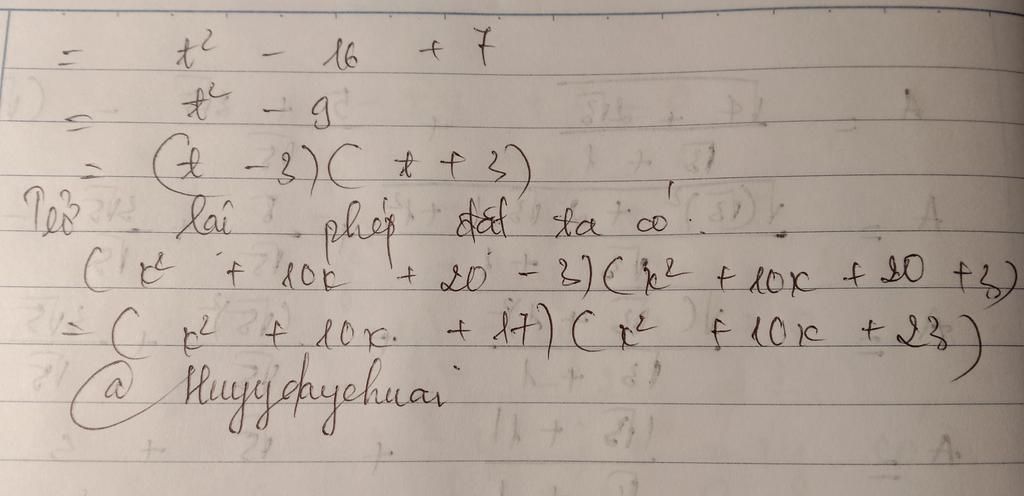 = t² - 16 + 7
= t² - 9
= (t - 3)(t + 3)
Trở lại phép đặt ta có:
(x² + 10x + 20 - 3)(x² + 10x + 20 + 3)
= (x² + 10x + 17)(x² + 10x + 23)
@ Huyydaychuai